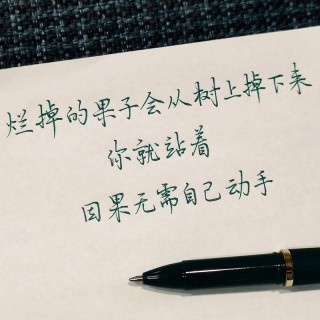 烂掉的果子会从树上掉下来
你就站着
因果无需自己动手